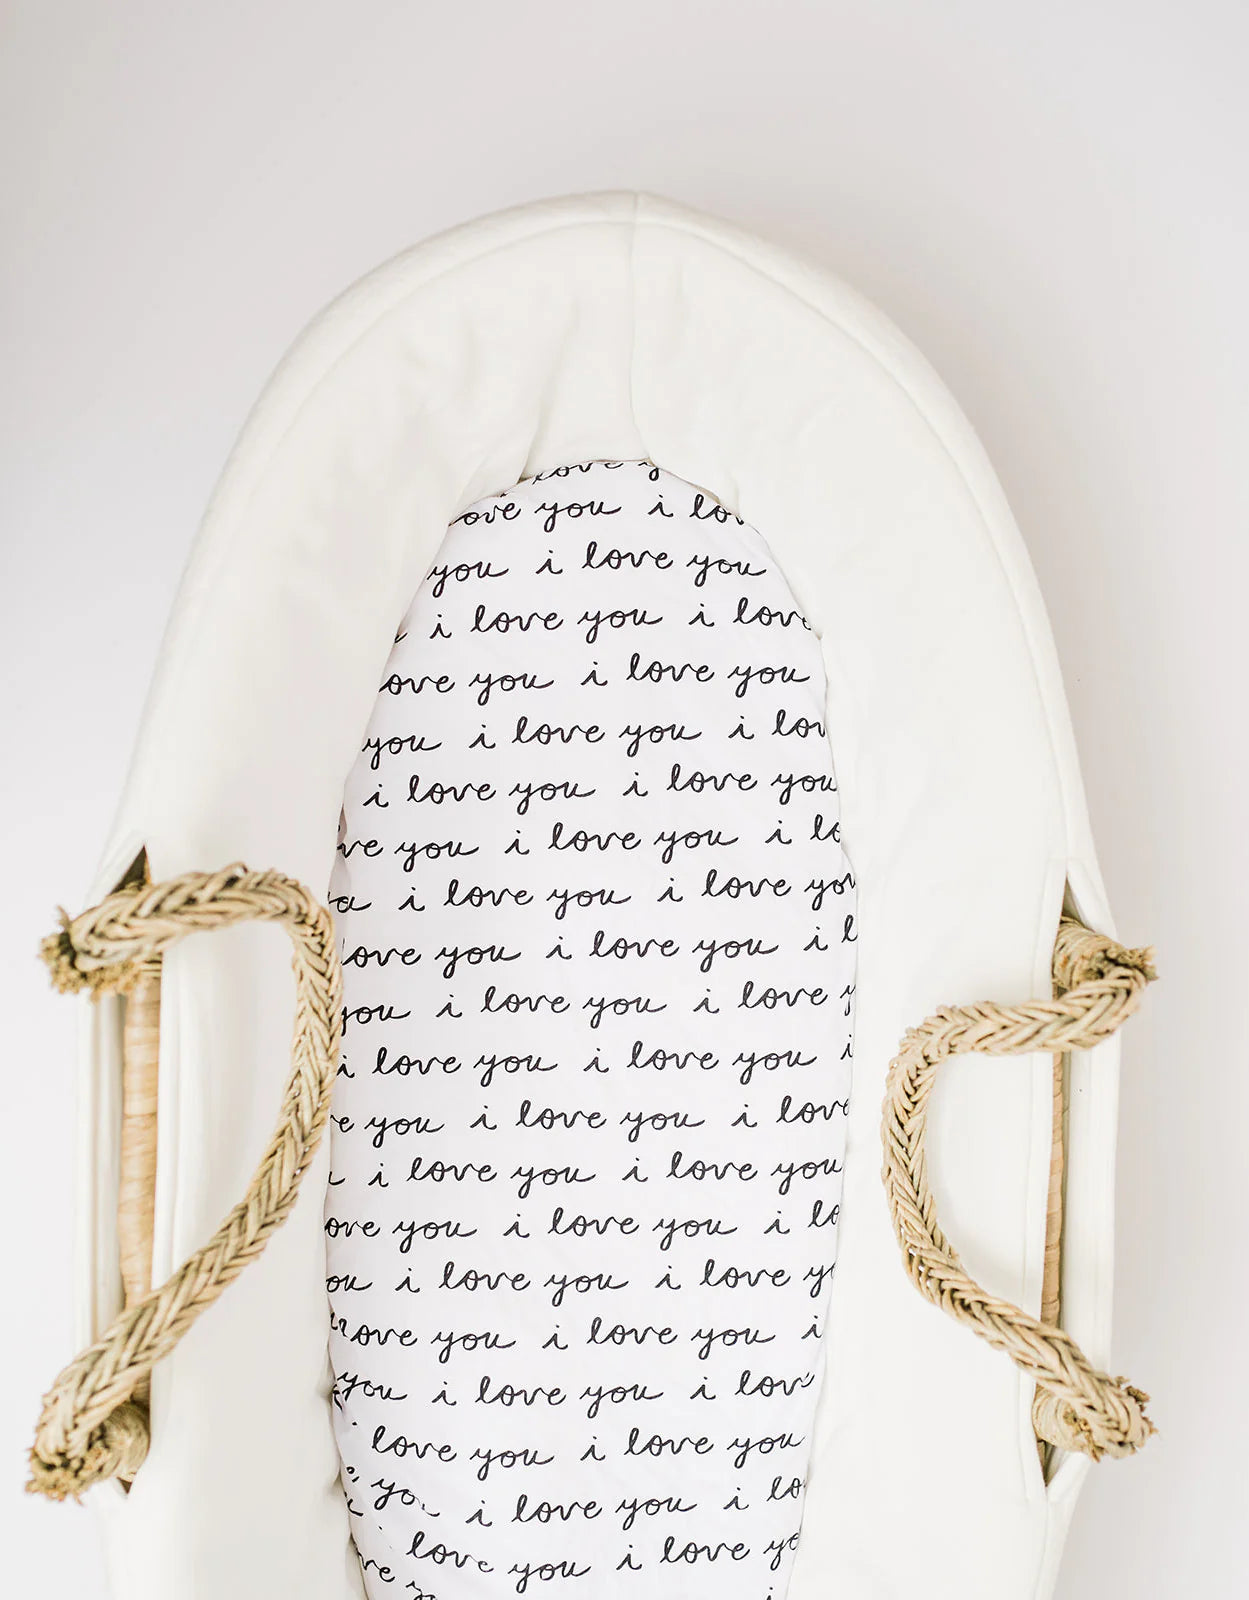 love y
ove you i lov
you i love you
i love you i love
ove you i love you
you i love you i lov
i love you i love you
ve you i love you i lo
i love you i love you
love you i love you i l
you i love you i love y
i love you i love you i
e you i love you i love
i love you i love you
ove you i love you i lo
ou i love you i love y
ove you i love you i
you i love you i lov
i love you i love you
yo i love you i lo
love you i love yo
ve y i